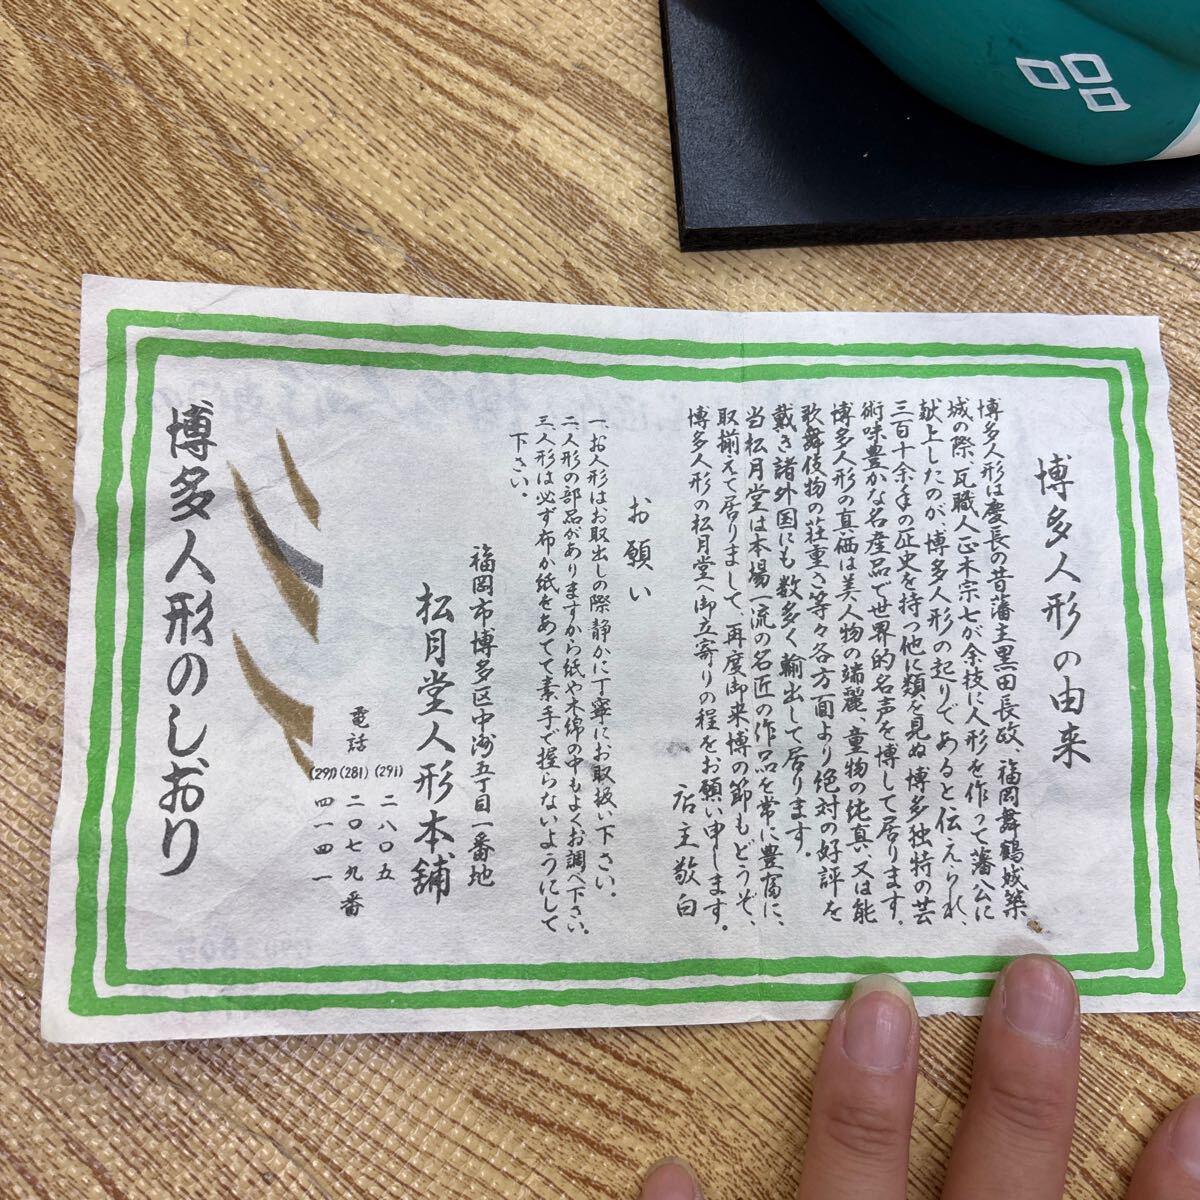 博多人形の由来
博多人形は慶長の昔藩主黒田長政、福岡舞鶴城築
城の際、瓦職人正木宗七が余技に人形を作って藩公に
献上したのが、博多人形の起りであると伝えられ、
三百十余年の歴史を持つ他に類を見ぬ博多独特の芸
術味豊かな名産品で世界的名声を博して居ります。
博多人形の真価は美人物の端麗、童物の純真、又は能
歌舞伎物の荘重さ等々各方面より絶対の好評を
戴き諸外国にも数多く輸出して居ります。
当松月堂は本場一流の名匠の作品を常に豊富に、
取揃えて居りまして、再度御来博の節もどうぞ、
博多人形の松月堂へ御立寄りの程をお願い申します。
店主敬白
お願い
一、お人形はお取出しの際静かに丁寧にお取扱い下さい。
二、人形の部品がありますから紙や木綿の中もよくお調べ下さい。
三、人形は必ず布か紙をあてて素手で握らないようにして
下さい。
福岡市博多区中洲五丁目一番地
松月堂人形本舗
電話
(291) 二八〇五
(281) 二〇七九番
(291) 四一四一
博多人形のしおり